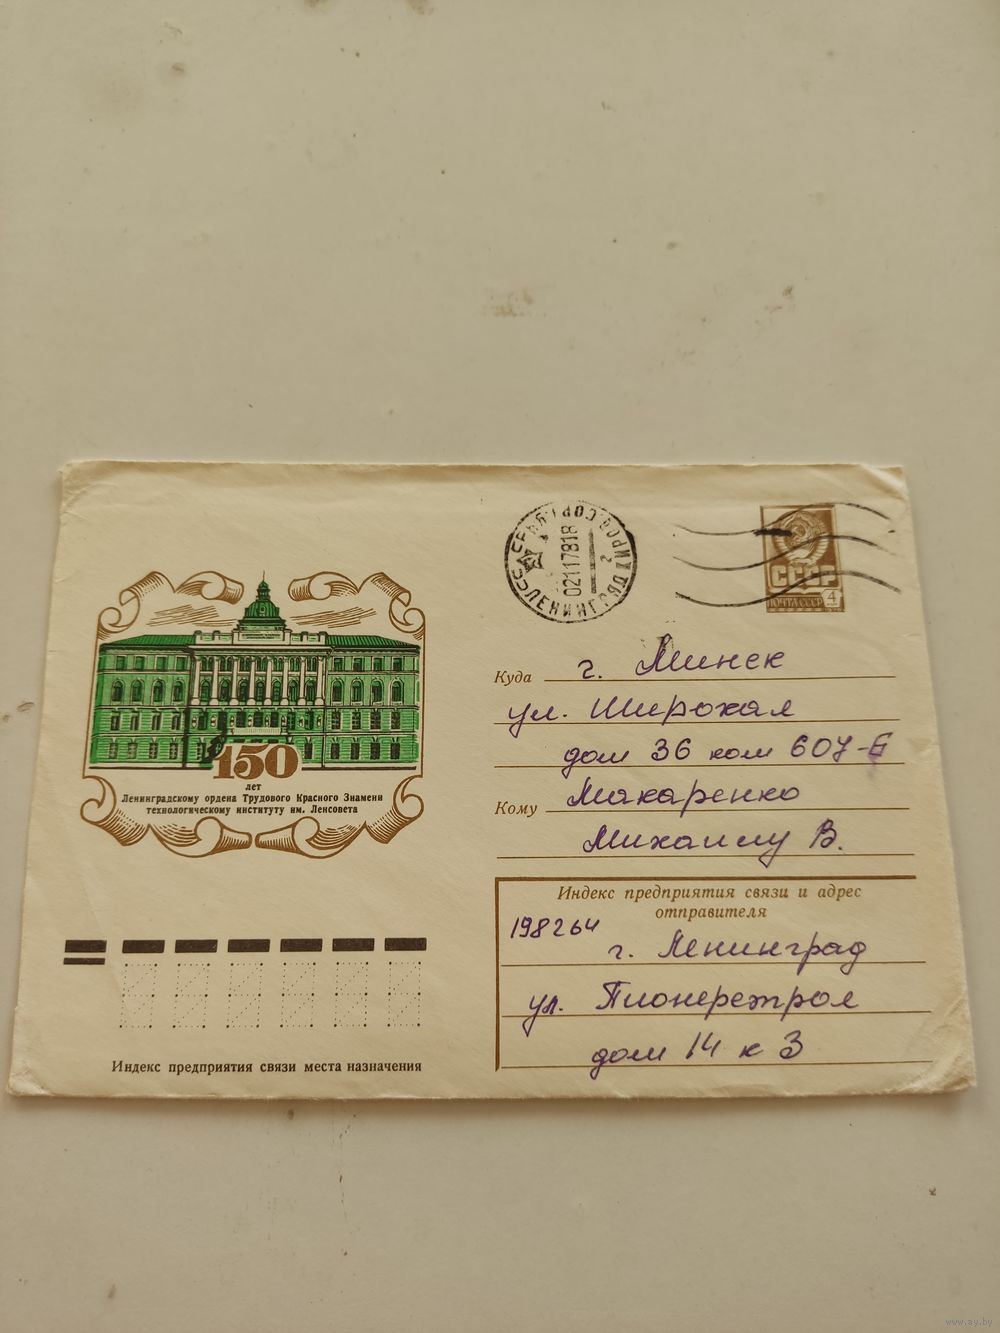 СССР
ПОЧТА СССР 4
02117818
ЛЕНИНГРАД
Куда г. Минск
ул. Широкая
дом 36 ком 607-Б
Кому Макаренко
Михаилу В.
150
лет
Ленинградскому ордена Трудового Красного Знамени
технологическому институту им. Ленсовета
Индекс предприятия связи и адрес
отправителя
198264
г. Ленинград
ул. Пионерстроя
дом 14 к 3
Индекс предприятия связи места назначения
www.ay.by